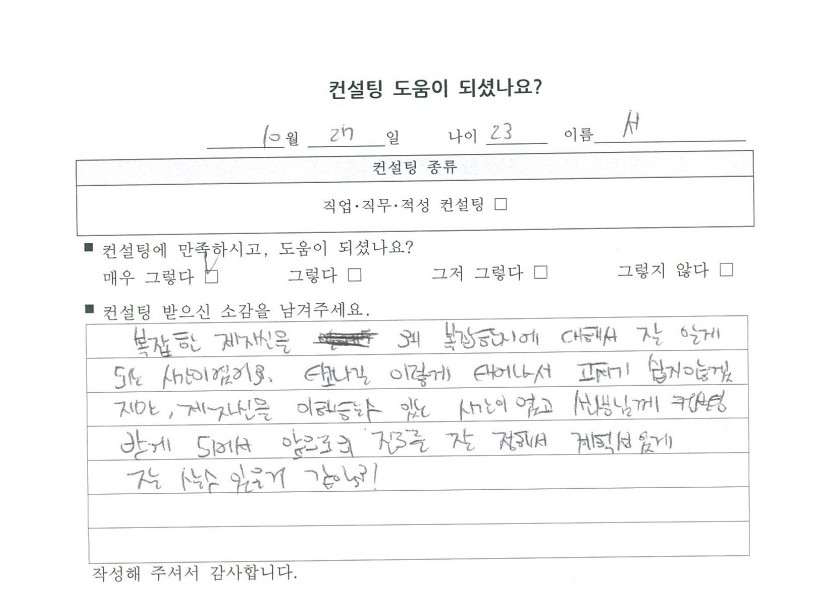 컨설팅 도움이 되셨나요?
10월 27일 나이 23 이름 서
컨설팅 종류
직업·직무·적성 컨설팅 □
■ 컨설팅에 만족하시고, 도움이 되셨나요?
매우 그렇다 ☑ 그렇다 □ 그저 그렇다 □ 그렇지 않다 □
■ 컨설팅 받으신 소감을 남겨주세요.
복잡한 제자신을 왜 복잡한지에 대해서 잘 알게
되는 시간이였어요. 타고나길 이렇게 태어나서 고치기 쉽지않겠
지만, 제자신을 이해할수 있는 시간이 였고 선생님께 컨설팅
받게 되어서 앞으로의 진로를 잘 정해서 계획성있게
잘 살수 있을거 같아요!
작성해 주셔서 감사합니다.